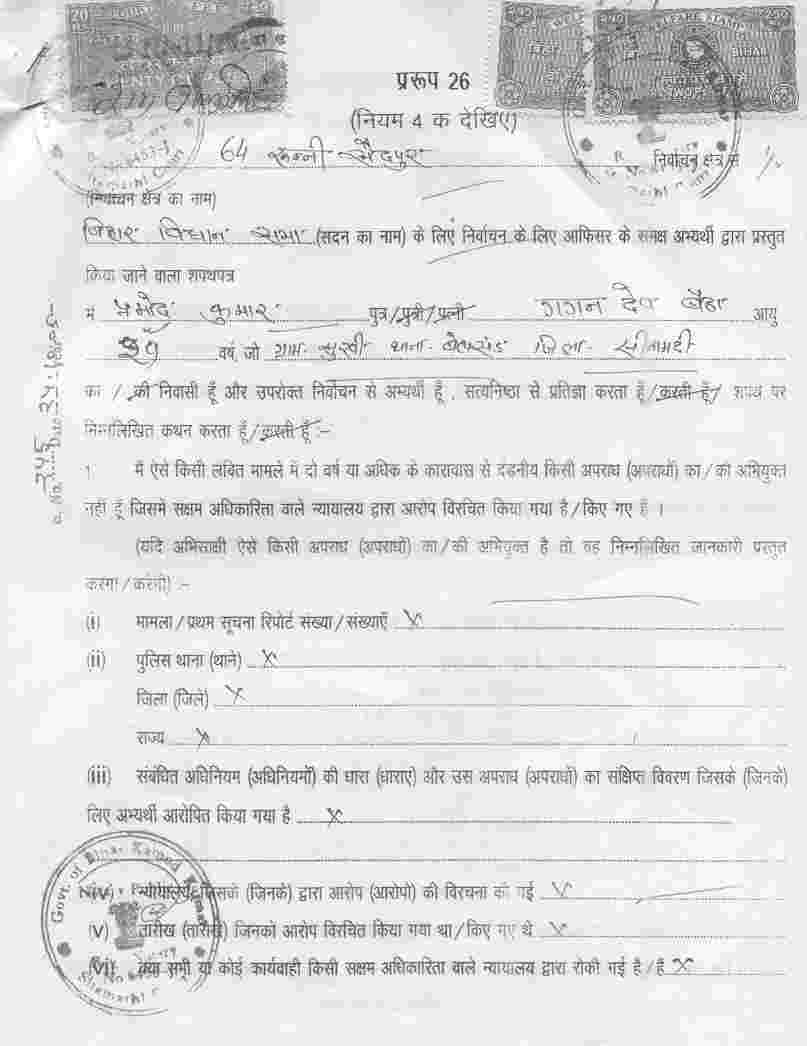 प्ररूप 26
(नियम 4 क देखिए)
64 रून्नी सैदपुर निर्वाचन क्षेत्र से
(निर्वाचन क्षेत्र का नाम)
बिहार विधान सभा (सदन का नाम) के लिएं निर्वाचन के लिए आफिसर के समक्ष अभ्यर्थी द्वारा प्रस्तुत
किया जाने वाला शपथपत्र
मैं प्रमोद कुमार पुत्र/पुत्री/पत्नी गगन देव बैठा आयु
39 वर्ष, जो ग्राम- थाना- बेलसंड जिला- सीतामढ़ी
का / की निवासी हूँ और उपरोक्त निर्वाचन से अभ्यर्थी हूँ , सत्यनिष्ठा से प्रतिज्ञा करता हूँ/करती हूँ/ शपथ पर
निम्नलिखित कथन करता हूँ/करती हूँ :-
1. मैं ऐसे किसी लंबित मामले में दो वर्ष या अधिक के कारावास से दंडनीय किसी अपराध (अपराधों) का/की अभियुक्त
नहीं हूँ जिसमें सक्षम अधिकारिता वाले न्यायालय द्वारा आरोप विरचित किया गया है/किए गए हैं ।
(यदि अभिसाक्षी ऐसे किसी अपराध (अपराधों) का/की अभियुक्त है तो वह निम्नलिखित जानकारी प्रस्तुत
करेगा/करेगी) :-
(i) मामला/प्रथम सूचना रिपोर्ट संख्या/संख्याएँ X
(ii) पुलिस थाना (थाने) X
जिला (जिले) X
राज्य X
(iii) संबंधित अधिनियम (अधिनियमों) की धारा (धाराएं) और उस अपराध (अपराधों) का संक्षिप्त विवरण जिसके (जिनके)
लिए अभ्यर्थी आरोपित किया गया है X
(iv) न्यायालय, जिसके (जिनके) द्वारा आरोप (आरोपों) की विरचना की गई X
(v) तारीख (तारीखें) जिनको आरोप विरचित किया गया था/किए गए थे X
(vi) क्या सभी या कोई कार्यवाही किसी सक्षम अधिकारिता वाले न्यायालय द्वारा रोकी गई है/हैं X